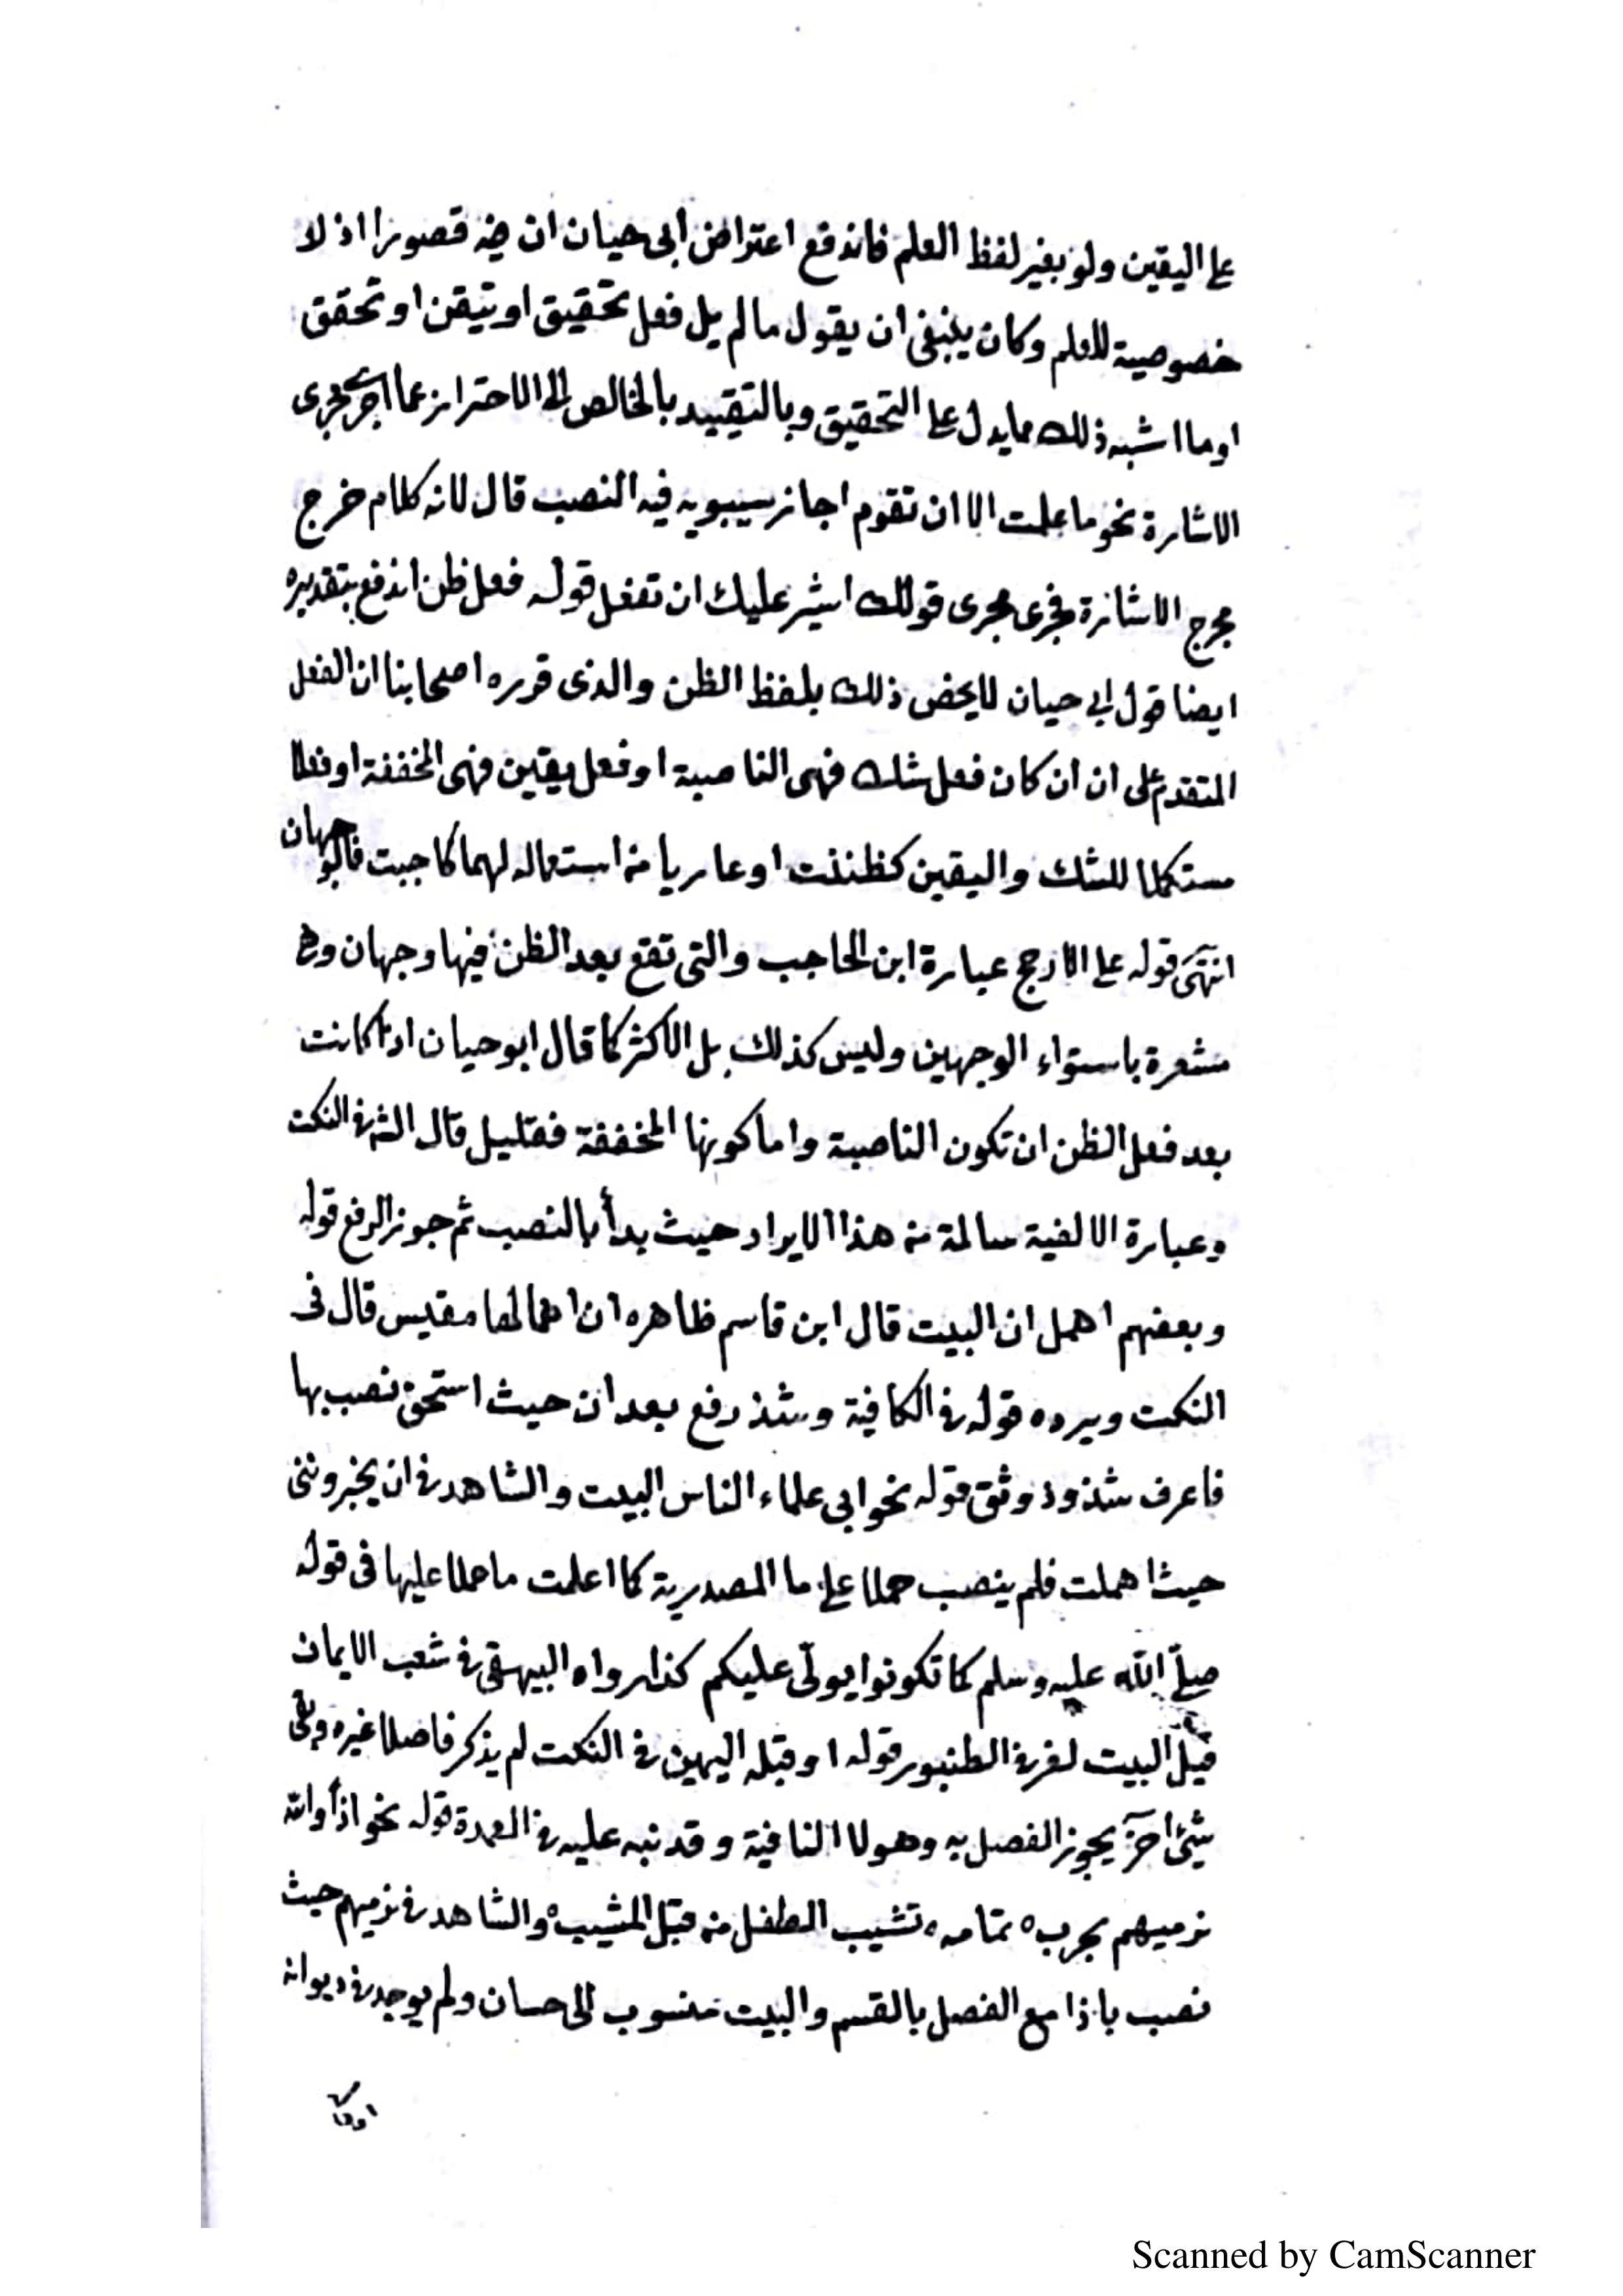 على اليقين ولو بغير لفظ العلم فاندفع اعتراض أبى حيان ان فيه قصورا اذ لا
خصوصية للعلم وكان ينبغى ان يقول ما لم يل فعل تحقيق او تيقن او تحقق
او ما اشبه ذلك مما يدل على التحقيق وبالتقييد بالخالص الى الاحتراز عما اجرى مجرى
الاشارة نحو ما علمت الا ان تقوم اجاز سيبويه فيه النصب قال لانه كلام خرج
مخرج الاشارة فجرى مجرى قولك اشير عليك ان تفعل قوله فعل ظن اندفع بتقديره
ايضا قول ابي حيان لا يخص ذلك بلفظ الظن والذى قرره اصحابنا ان الفعل
المتقدم على ان ان كان فعل شك فهى الناصبة او فعل يقين فهى المخففة او فعلا
مستكملا للشك واليقين كظننت او عاريا من استعماله لهما كاجبت فالوجهان
انتهى قوله على الارجح عبارة ابن الحاجب والتى تقع بعد الظن فيها وجهان وهى
مشعرة باستواء الوجهين وليس كذلك بل الاكثر كما قال ابو حيان اذا كانت
بعد فعل الظن ان تكون الناصبة واما كونها المخففة فقليل قال الش فى النكت
وعبارة الالفية سالمة من هذا الايراد حيث بدأ بالنصب ثم جوز الرفع قوله
وبعضهم اهمل ان البيت قال ابن قاسم ظاهره ان اهمالها مقيس قال فى
النكت ويرده قوله فى الكافية وشذ رفع بعد ان حيث استحق نصب بها
فاعرف شذوذ وثق قوله نحو ابى علماء الناس البيت والشاهد فى ان يخبروننى
حيث اهملت فلم ينصب حملا على ما المصدرية كما اعلمت ما حملا عليها فى قوله
صلى الله عليه وسلم كما تكونوا يولّى عليكم كذا رواه البيهقى فى شعب الايمان
قيل البيت لغز فى الطنبور قوله او قبله اليمين فى النكت لم يذكر فاصلا غيره وبقى
شئ آخر يجوز الفصل به وهو لا النافية وقد نبه عليه فى العمدة قوله نحو اذا والله
نرميهم بحرب ٥ تمامه ٥ تشيب الطفل من قبل المشيب ٥ والشاهد فى نرميهم حيث
نصب باذا مع الفصل بالقسم والبيت منسوب الى حسان ولم يوجد فى ديوانه